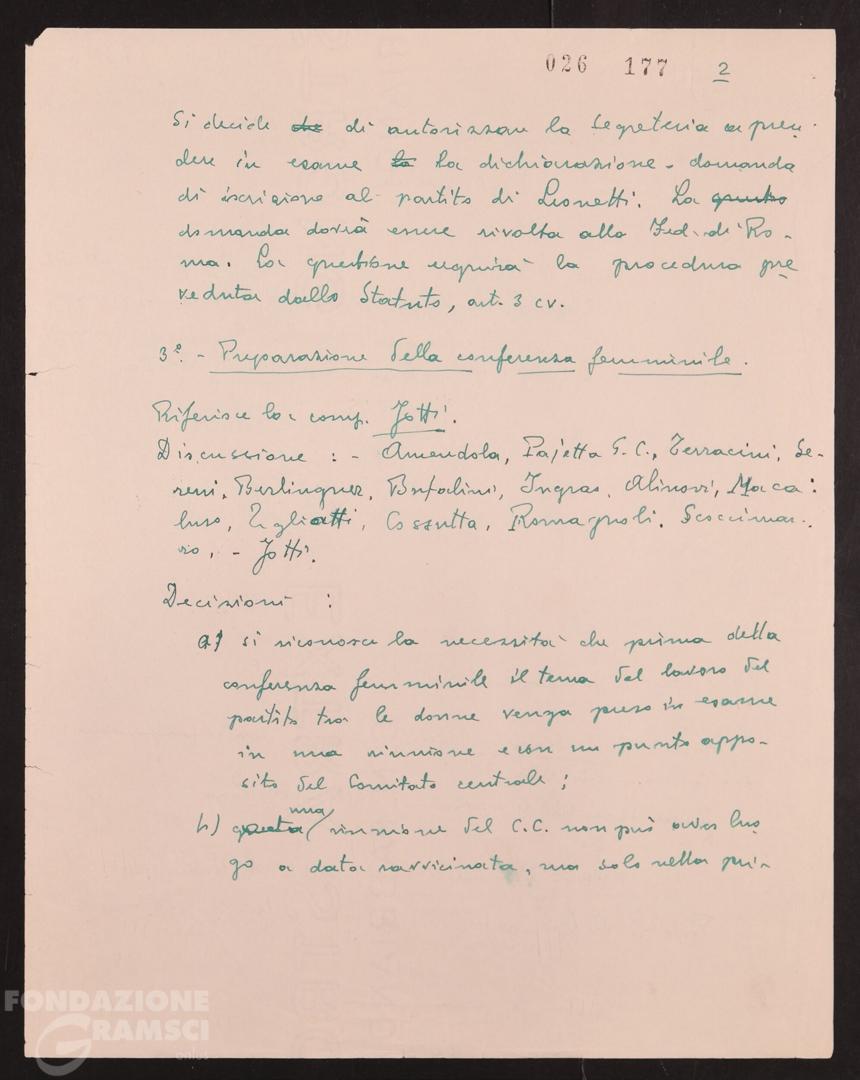 026 177 2
Si decide che di autorizzare la Segreteria a pren-
dere in esame la la dichiarazione-domanda
di iscrizione al partito di Leonetti. La questio
domanda dovrà essere rivolta alla Fed. di Ro-
ma. La questione seguirà la procedura pre
veduta dallo Statuto, art. 3 cv.
3°. - Preparazione della conferenza femminile.
Riferisce la comp. Jotti.
Discussione : - Amendola, Pajetta G. C., Terracini, Se-
reni, Berlinguer, Bufalini, Ingrao, Alinovi, Maca-
luso, Togliatti, Cossutta, Romagnoli, Scoccimar-
ro, - Jotti.
Decisioni :
a) si riconosce la necessità che prima della
conferenza femminile il tema del lavoro del
partito tra le donne venga preso in esame
in una riunione e con un punto appo-
sito del Comitato centrale ;
b) questa una riunione del C.C. non può aver luo
go a data ravvicinata, ma solo nella pri-
FONDAZIONE
GRAMSCI
onlus